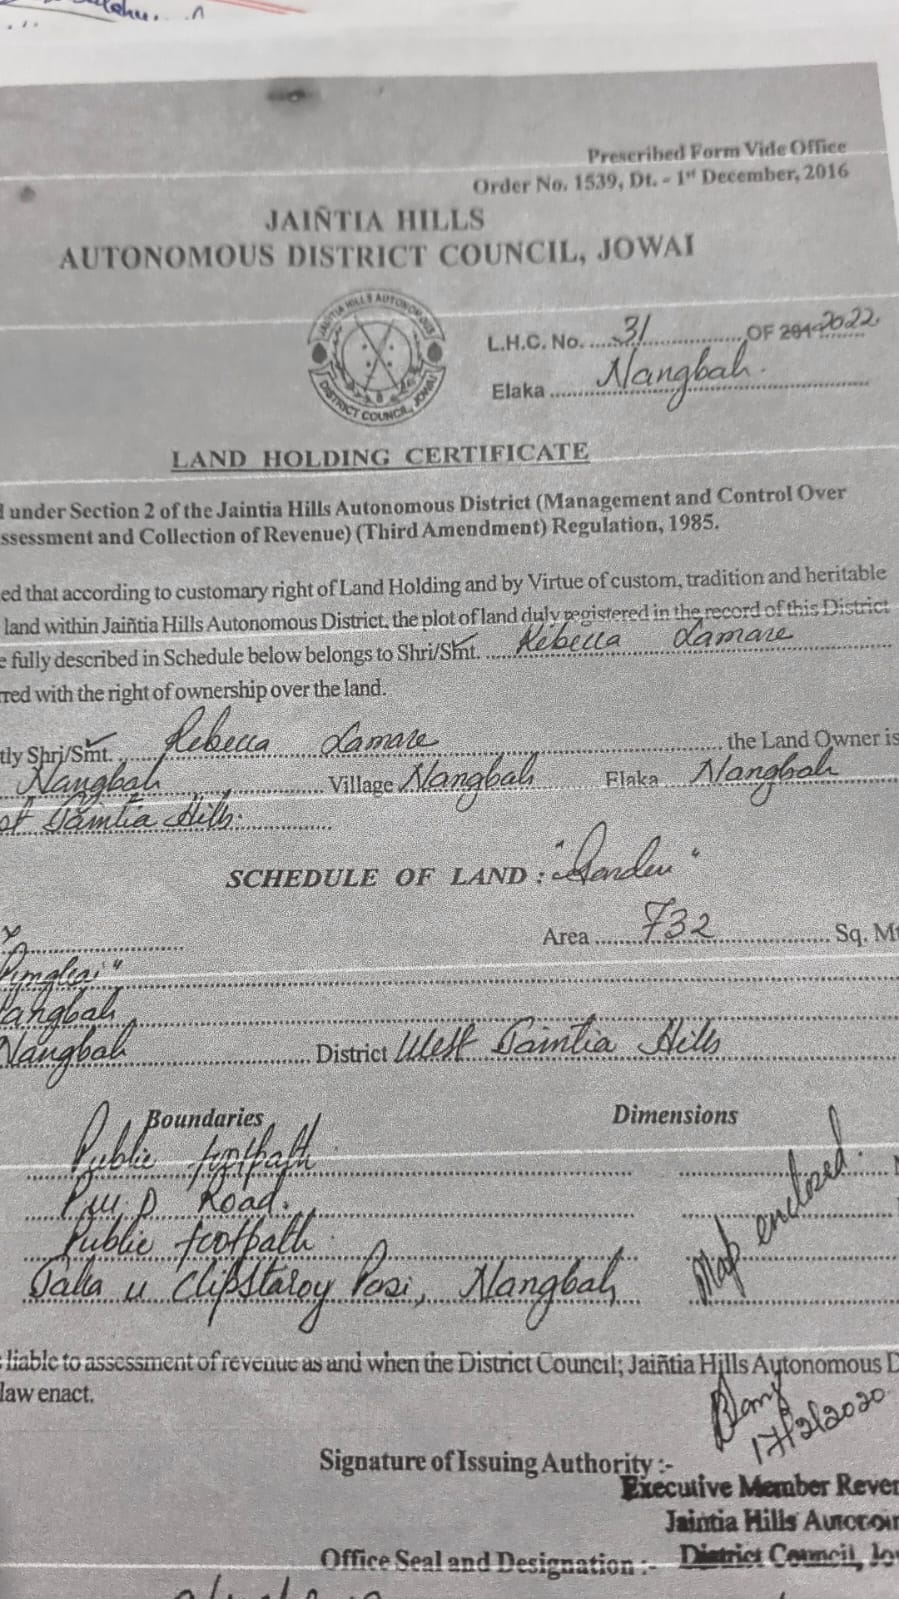 Prescribed Form Vide Office
Order No. 1539, Dt. - 1st December, 2016
JAIÑTIA HILLS
AUTONOMOUS DISTRICT COUNCIL, JOWAI
JAINTIA HILLS AUTONOMOUS
DISTRICT COUNCIL, JOWAI
L.H.C. No. 31 OF 201 2022
Elaka Nangbah.
LAND HOLDING CERTIFICATE
under Section 2 of the Jaintia Hills Autonomous District (Management and Control Over
ssessment and Collection of Revenue) (Third Amendment) Regulation, 1985.
ed that according to customary right of Land Holding and by Virtue of custom, tradition and heritable
land within Jaiñtia Hills Autonomous District, the plot of land duly registered in the record of this District
e fully described in Schedule below belongs to Shri/Smt. Rebecca Lamare
rred with the right of ownership over the land.
tly Shri/Smt. Rebecca Lamare the Land Owner is
Nangbah Village Nangbah Elaka Nangbah
Jaintia Hills.
SCHEDULE OF LAND :
Area 732 Sq. M
Nangbah
Nangbah District West Jaintia Hills
Boundaries Dimensions
Public footpath
P.W.D Road.
Public footpath
Map enclosed.
Pasi, Nangbah
liable to assessment of revenue as and when the District Council; Jaiñtia Hills Autonomous D
law enact.
17/2/2020
Signature of Issuing Authority :-
Executive Member Reven
Jaintia Hills Autonom
Office Seal and Designation :- District Council, Jo